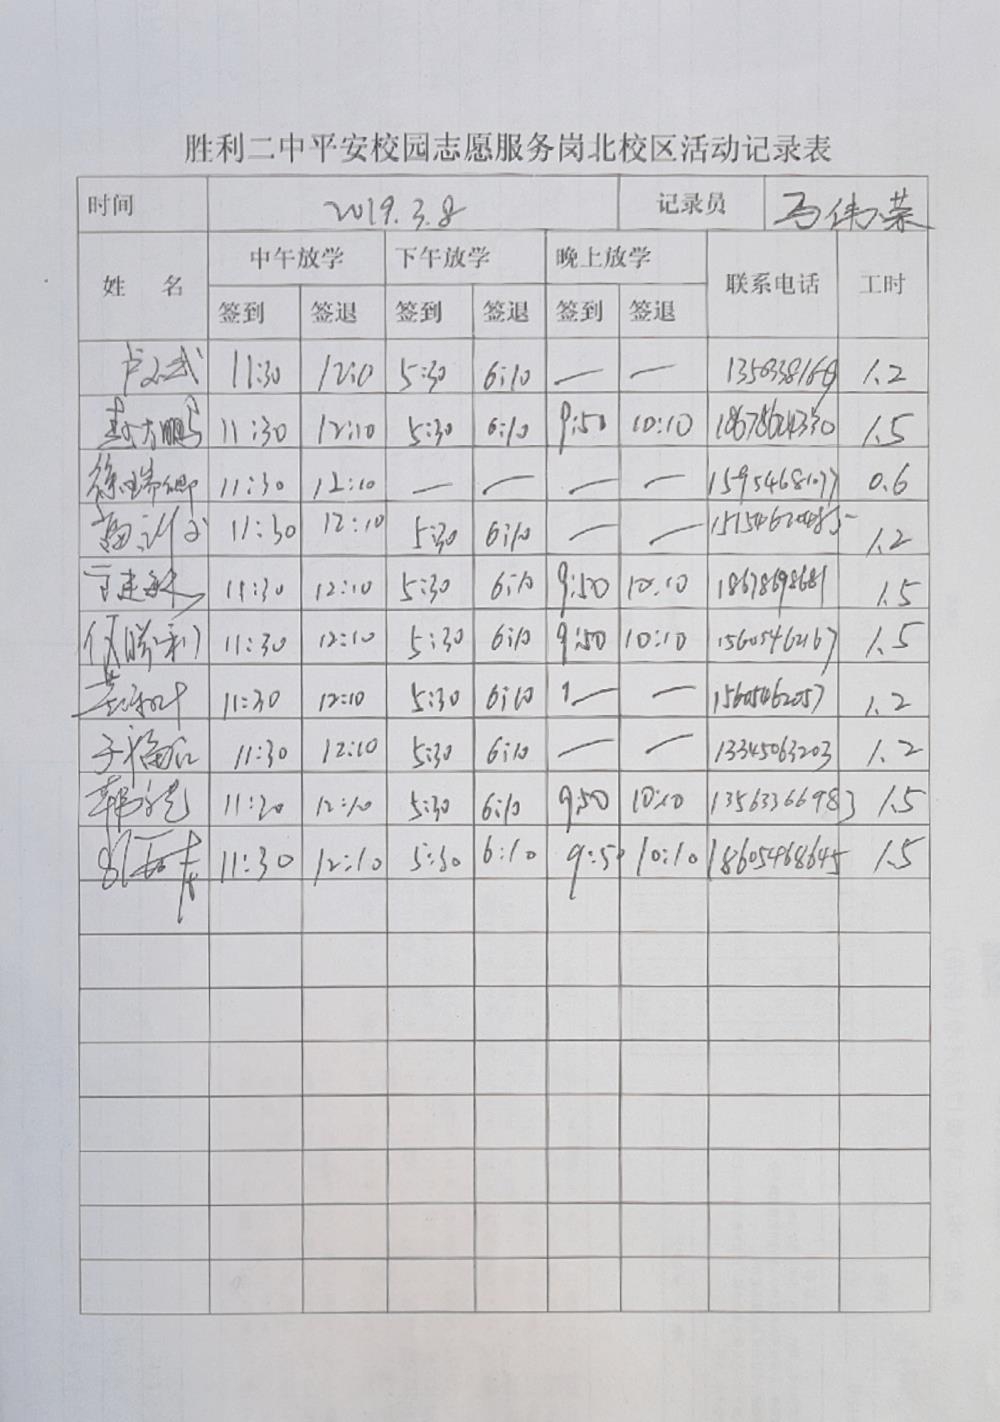 胜利二中平安校园志愿服务岗北校区活动记录表
时间 2019.3.8 记录员 马伟荣
姓 名 中午放学 下午放学 晚上放学 联系电话 工时
签到 签退 签到 签退 签到 签退
11:30 12:10 5:30 6:10 — — 1.2
11:30 12:10 5:30 6:10 9:50 10:10 18678624330 1.5
徐瑞卿 11:30 12:10 — — — — 15954681077 0.6
11:30 12:10 5:30 6:10 — — 1.2
11:30 12:10 5:30 6:10 9:50 10:10 18678698681 1.5
仪胜利 11:30 12:10 5:30 6:10 9:50 10:10 15605462167 1.5
11:30 12:10 5:30 6:10 — — 15605462057 1.2
11:30 12:10 5:30 6:10 — — 13345063203 1.2
11:30 12:10 5:30 6:10 9:50 10:10 13563366983 1.5
11:30 12:10 5:30 6:10 9:50 10:10 18605468645 1.5